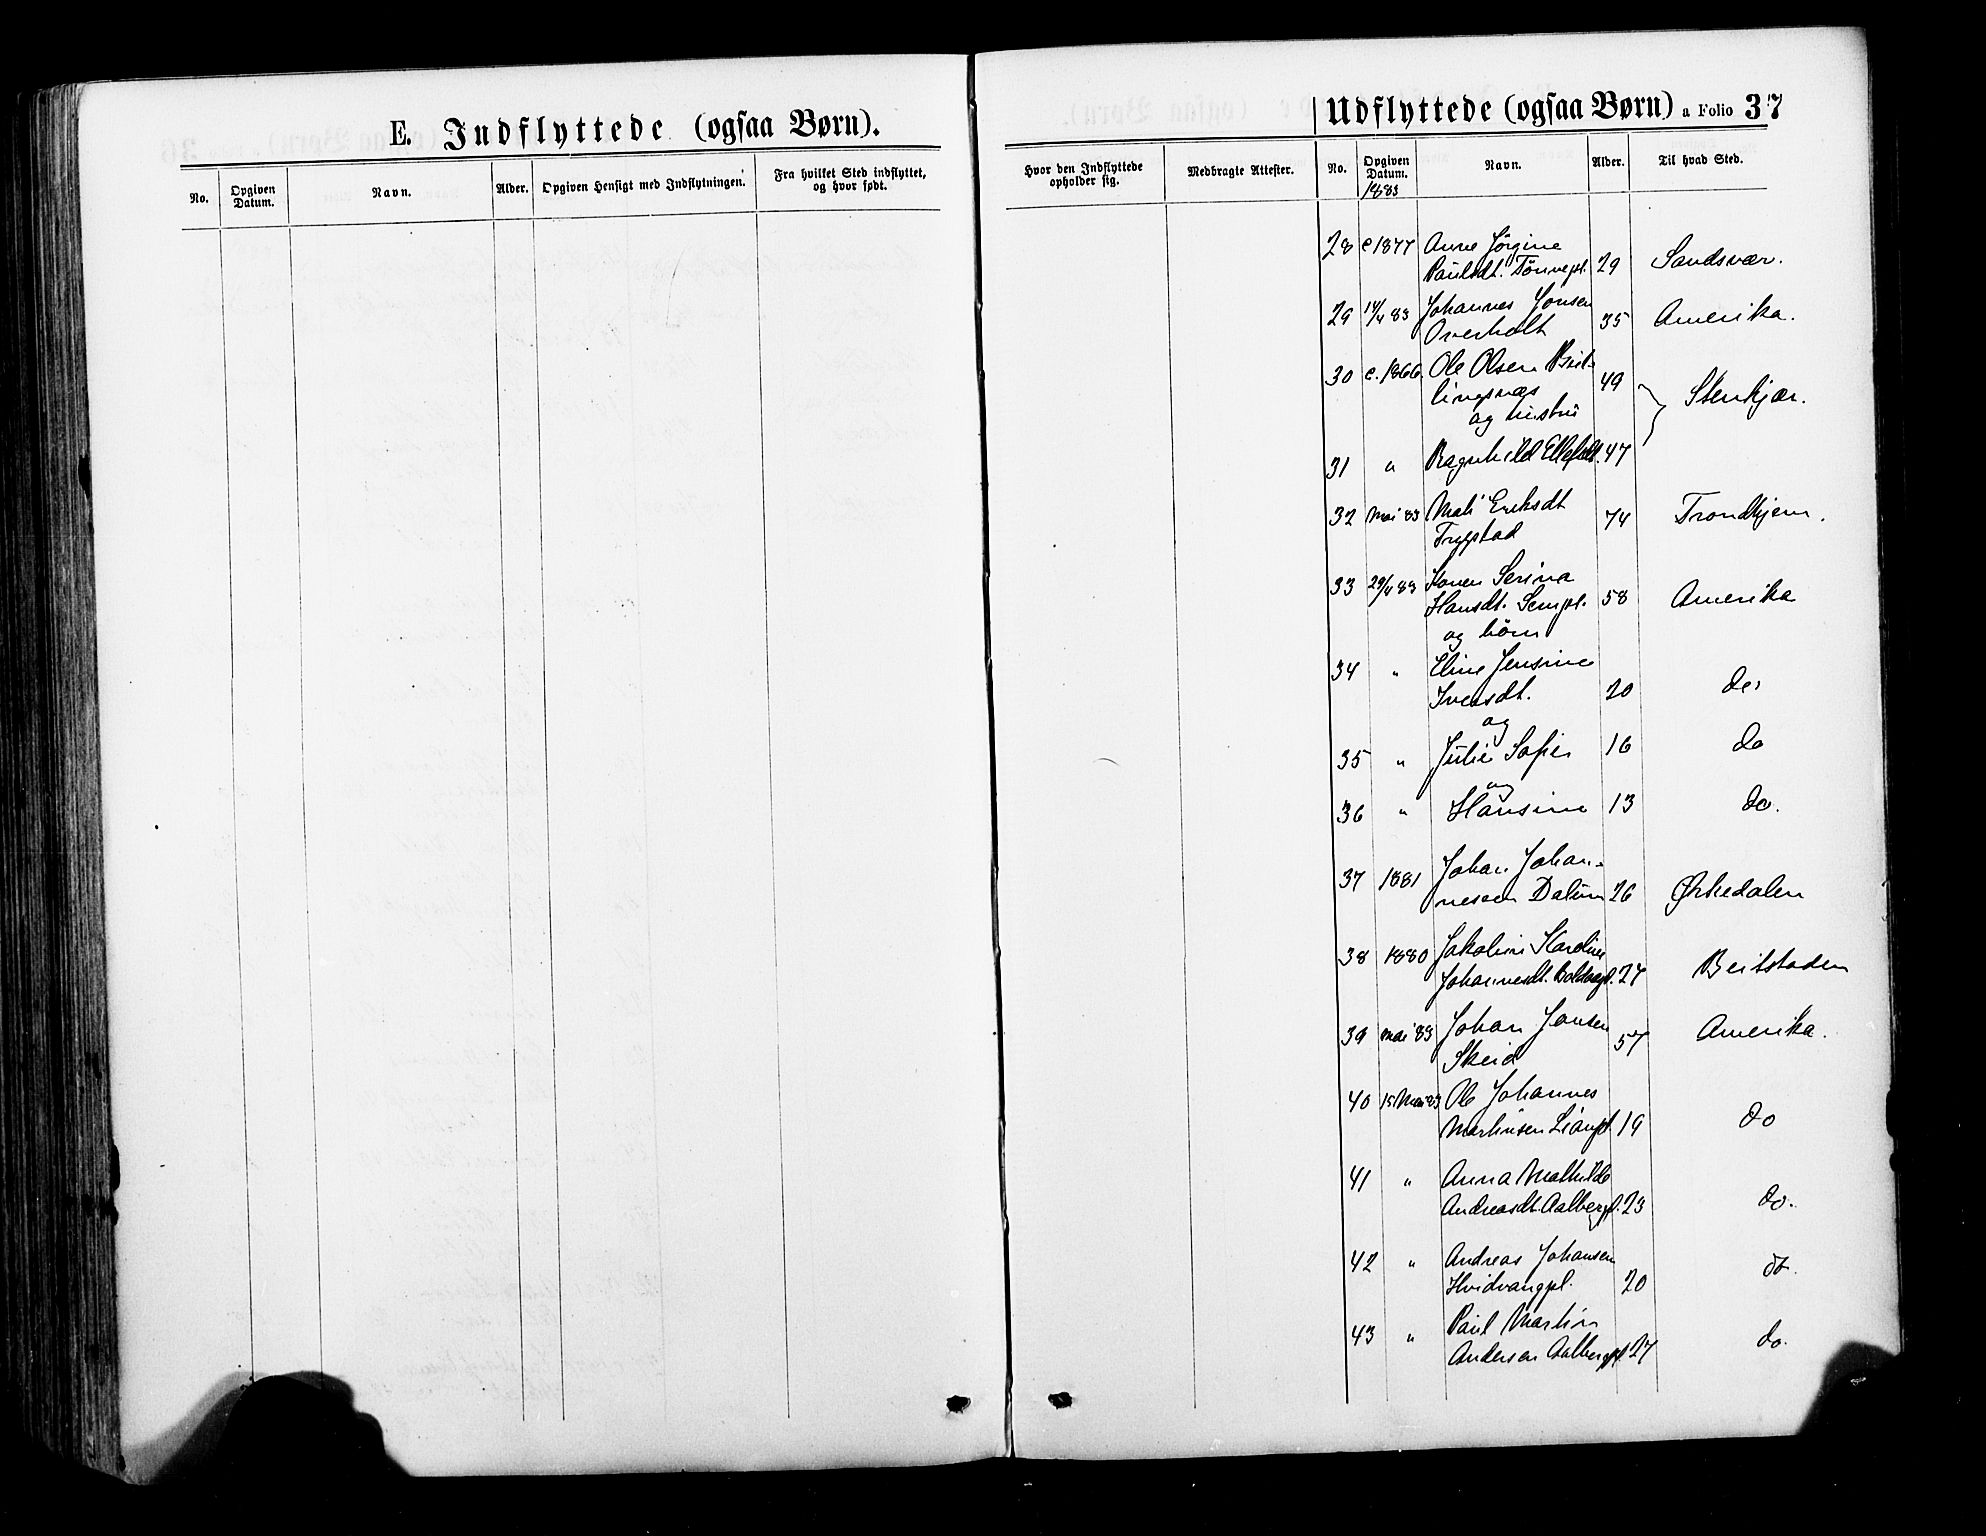 E. Indflyttede (ogsaa Børn).
No. Opgiven Datum. Navn. Alder. Opgiven Hensigt med Indflytningen. Fra hvilket Sted indflyttet, og hvor født.
Udflyttede (ogsaa Børn) a Folio 37
Hvor den Indflyttede opholder sig. Medbragte Attester. No. Opgiven Datum. Navn. Alder. Til hvad Sted.
1883
28 c 1877 Anne Jørgine
Paulsdt. Tønnepl. 29 Sandsvær.
29 14/4 83 Johannes Jonsen
Overholt 35 Amerika.
30 c. 1866. Ole Olsen
49 Stenkjær.
og hustru
31 " Ragnhild Ellefsdt. 47
32 Mai 83 Mali Eriksdt
Trygstad 74 Trondhjem.
33 29/4 83 Konen Serina
Hansdt. Sempl. 58 Amerika
og børn
34 " Eline Jensine
Iversdt. 20 do.
og
35 " Julie Sofie 16 do
og
36 " Hansine 13 do.
37 1881 Johan Johan-
nesen Dalum 26 Ørkedalen
38 1880 Jakobine Karoline
Johannesdt. 27 Beitstaden
39 mai 83 Johan Jonsen
Skeid 57 Amerika.
40 15 Mai 83 Ole Johannes
Martinsen Lianpl. 19 do
41 " Anna Mathilde
Andreasdt. Aalbergpl. 23 do.
42 " Andreas Johansen
Hvidvangpl. 20 do.
43 " Paul Martin
Andersen Aalbergpl. 27 do.